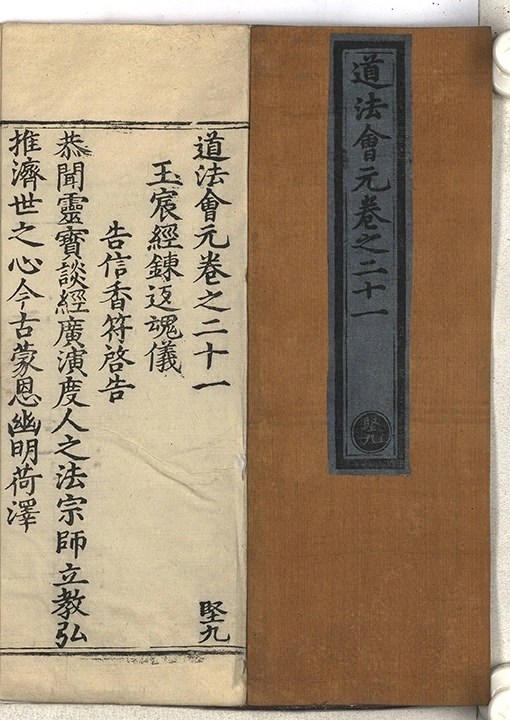 道法會元卷之二十一
堅九
道法會元卷之二十一
堅九
玉宸經鍊返魂儀
告信香符啓告
恭聞靈寶談經廣演度人之法宗師立教弘
推濟世之心今古蒙恩幽明荷澤